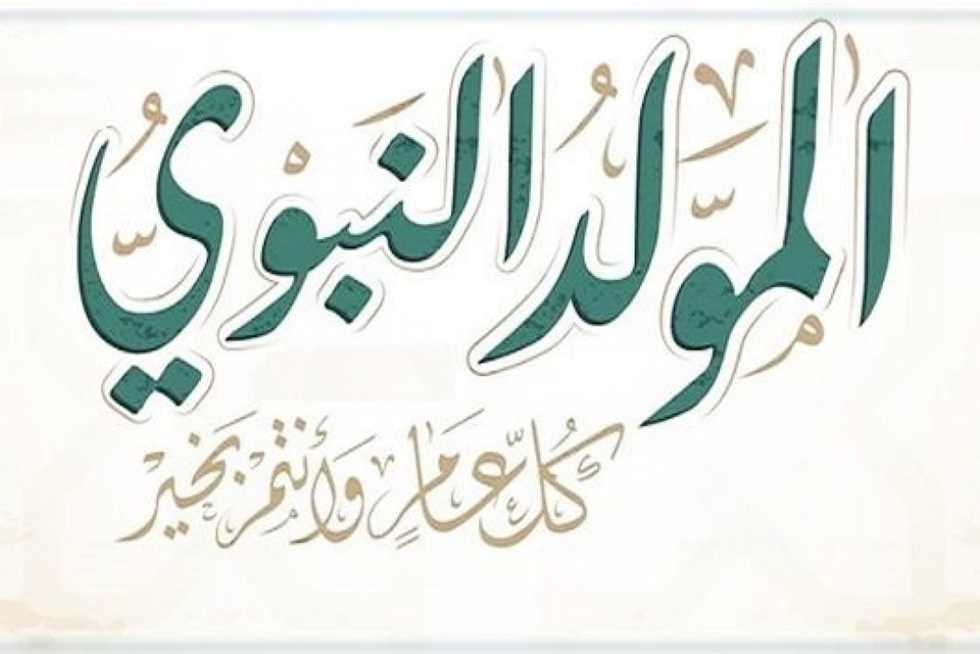 المَولِدُ النَّبَوِيّ
كُلُّ عَامٍ وَأَنْتُمْ بِخَيْر